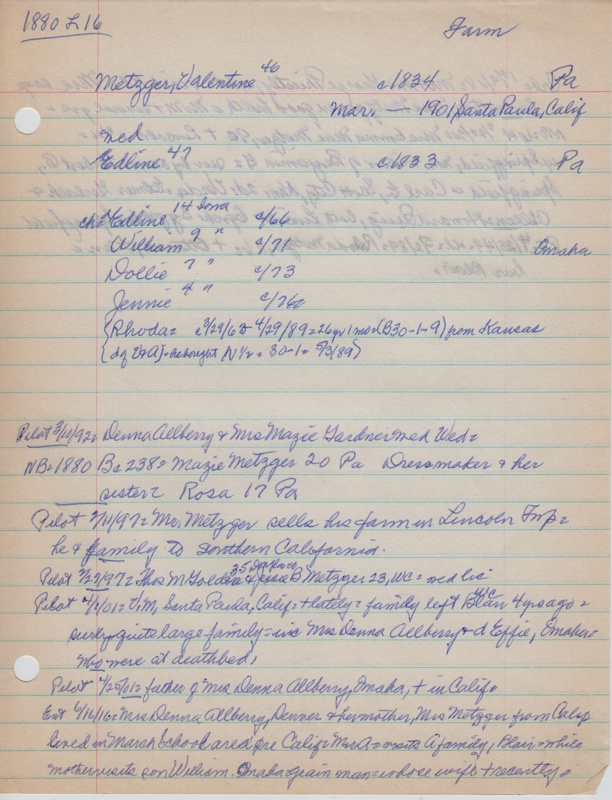 1880 L 16
Farm
Metzger, Valentine 46 c1834 Pa
Mar. — 1901, Santa Paula, Calif
med
Edline 47 c1833 Pa
ch= Edline 14 Iowa c/66
William 9 " c/71 Omaha
Dollie 7 " c/73
Jennie 4 " c/76
{Rhoda= c3/29/63 4/29/89=26yr 1 mo (B30-1-9) from Kansas
{d of V & A bought N 1/2 = 30-1= 5/3/89)
Pilot 3/10/92= Denna Allberry & Mrs Mazie Gardner med Wed=
NB=1880 Bs 238= Mazie Metzger 20 Pa Dressmaker & her
sister= Rosa 17 Pa
Pilot 2/11/97= Mr. Metzger sells his farm in Lincoln Twp=
he & family to southern California.
Thos M Golden 35 & B Metzger 23, WC= med lic
Pilot 4/4/01= V.M, Santa Paula, Calif= + lately= family left Blair WC 4 yrs ago=
surv= quite large family= inc Mrs Denna Allberry & d Effie, Omaha=
who were at deathbed,
Pilot 4/25/01= father of Mrs Denna Allberry, Omaha, + in Calif=
Ent 6/16/16= Mrs Denna Allberry, Denver & her mother, Mrs Metzger from Calif
lived in March School area pre Calif= Mrs A= visits A family, Blair= while
mother visits son William. Omaha grain man= whose wife + recently=